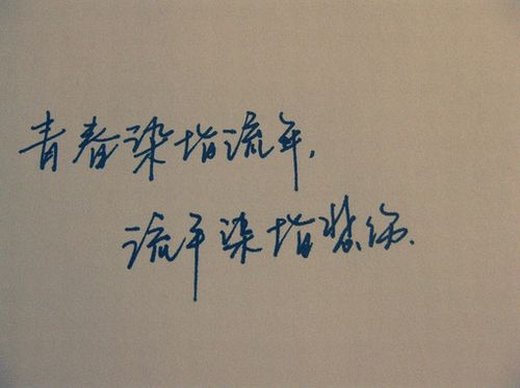 青春染指流年，
流年染指悲伤.